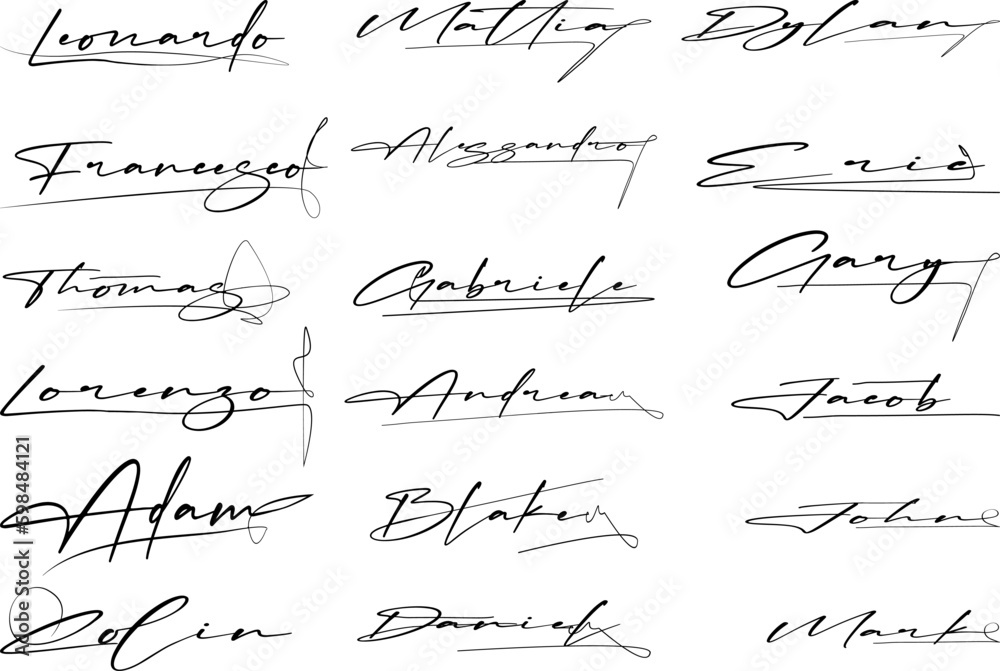 Leonardo Mattia Dylan
Francesco Alessandro Eric
Thomas Gabriele Gary
Lorenzo Andrea Jacob
Adam Blake John
Colin Daniel Mark
Adobe Stock | #598484121